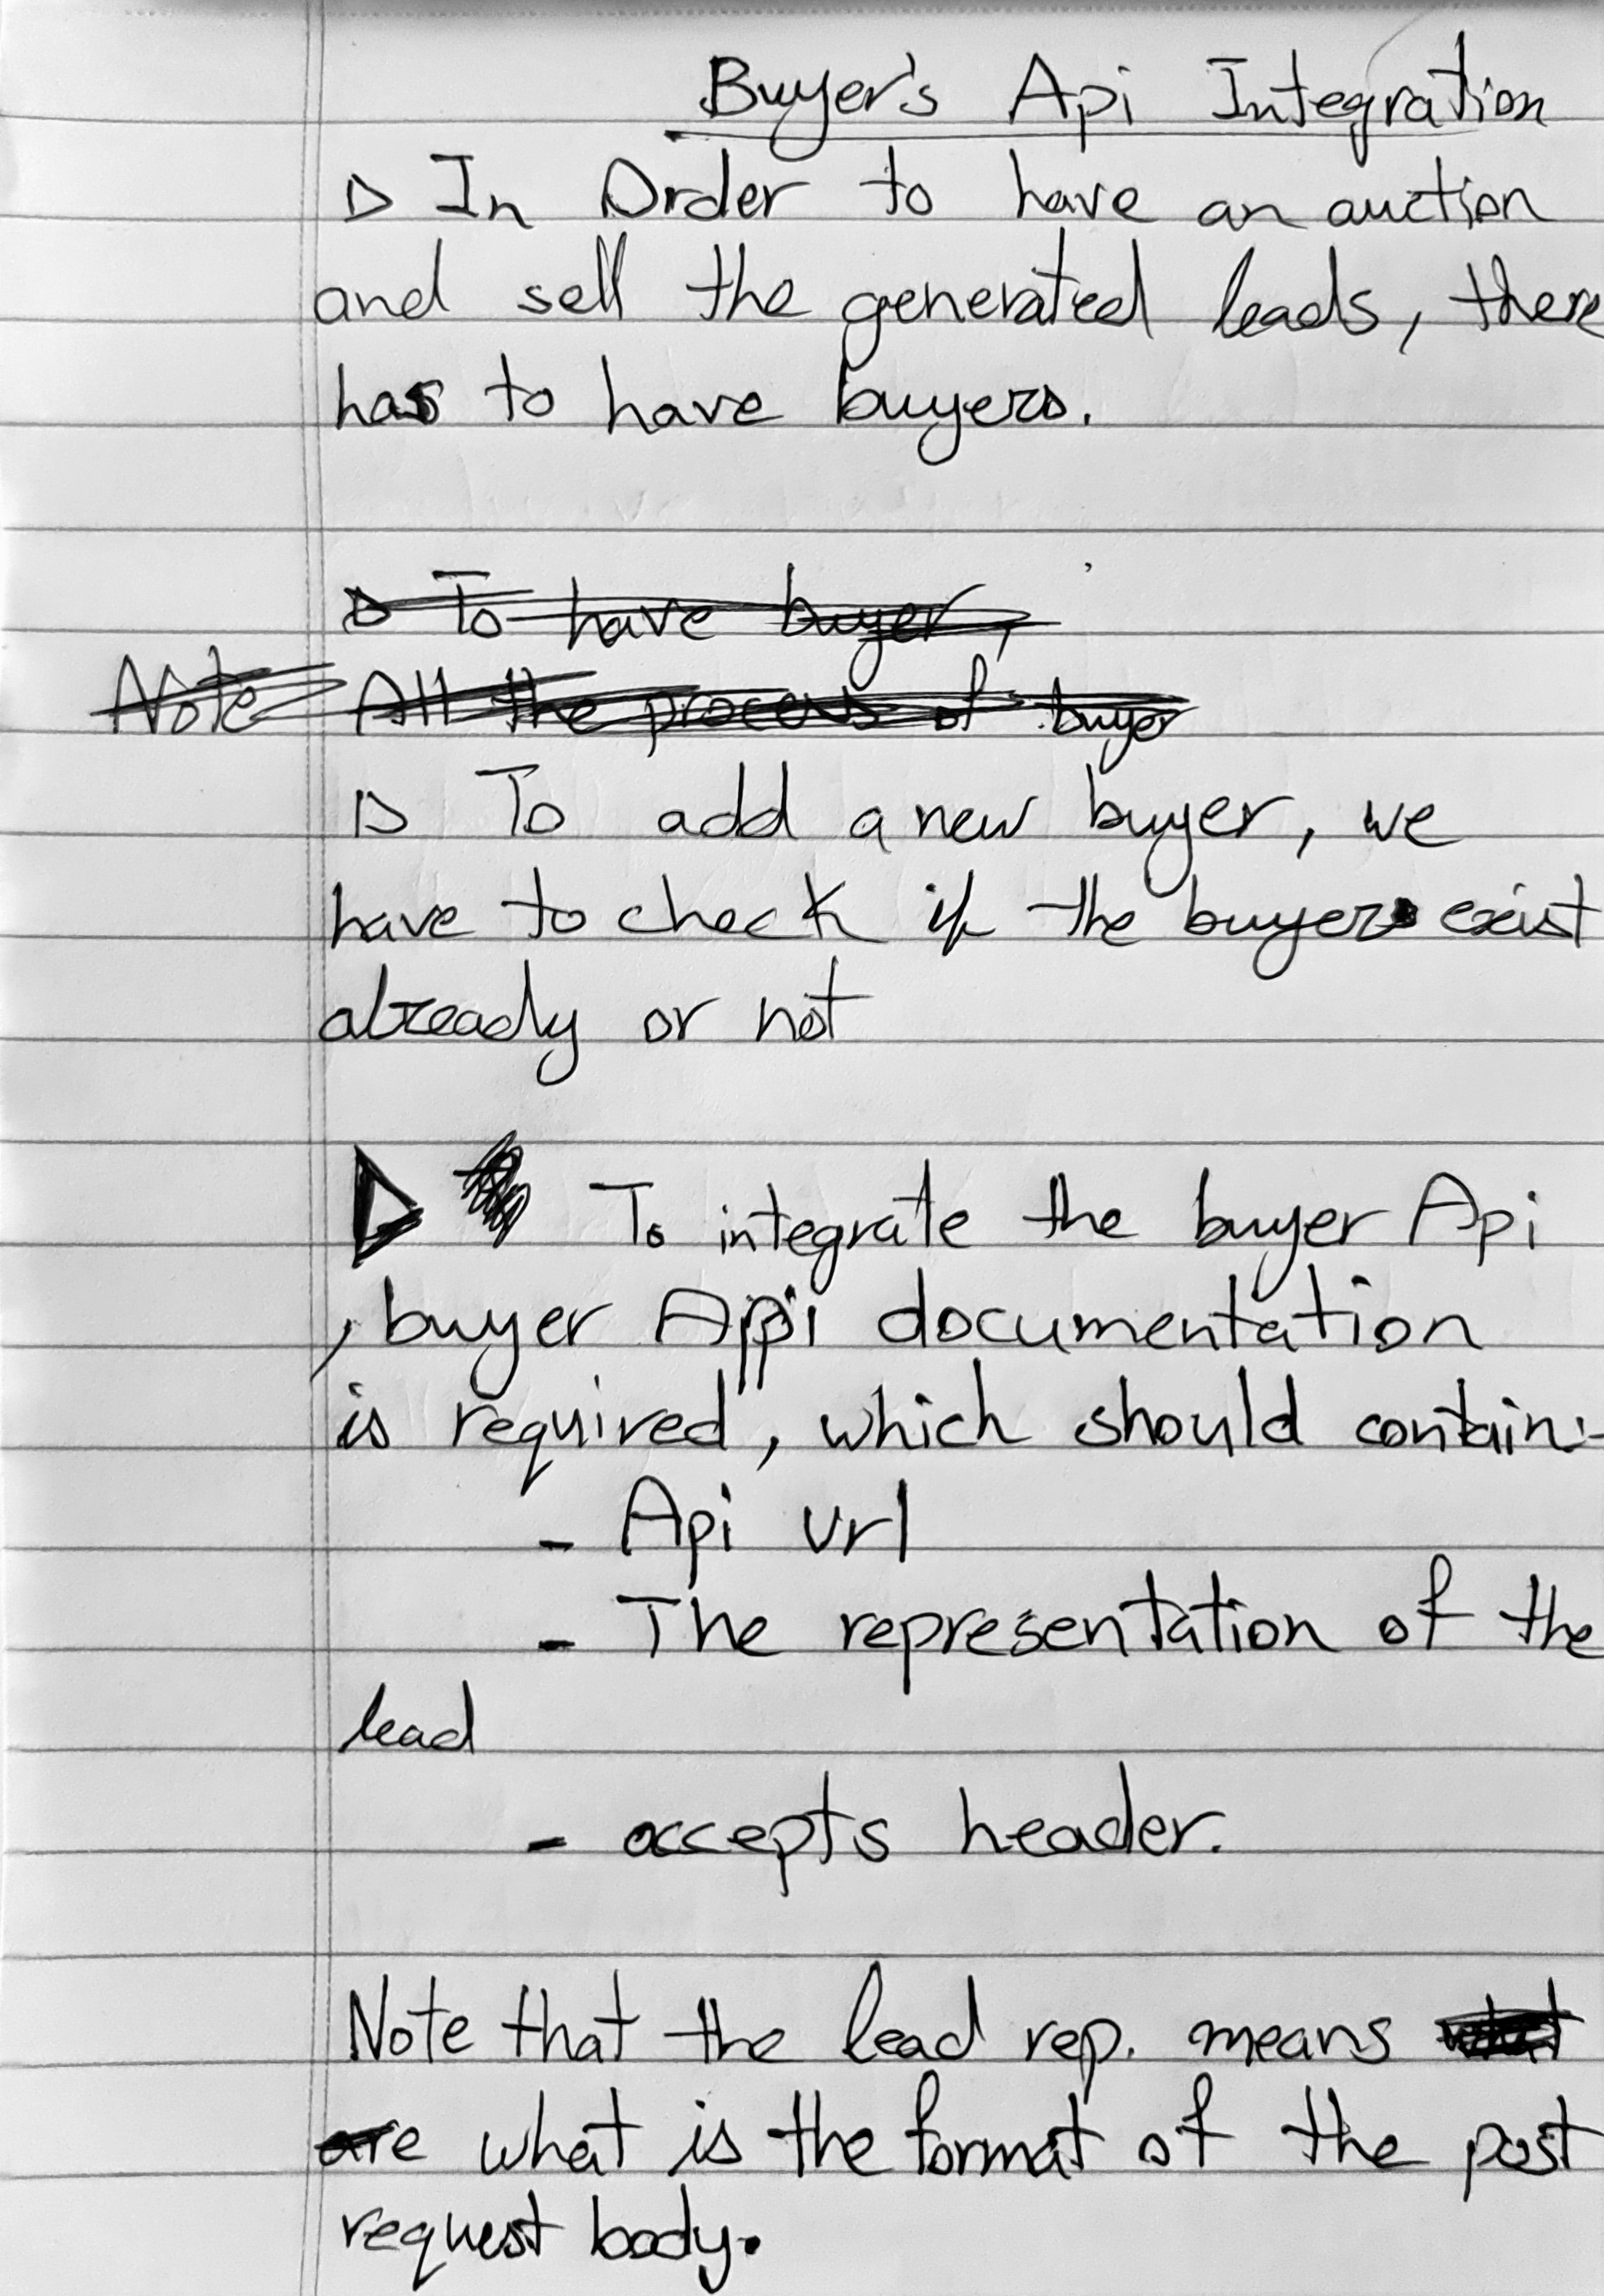 Buyer's Api Integration
▷ In Order to have an auction
and sell the generated leads, there
has to have buyers.
▷ To have buyer,
Note All the process of buyer
▷ To add a new buyer, we
have to check if the buyer exist
already or not
▷ To integrate the buyer Api
, buyer Appi documentation
is required, which should contain:-
- Api url
- The representation of the
lead
- accepts header.
Note that the lead rep. means what
are what is the format of the post
request body.